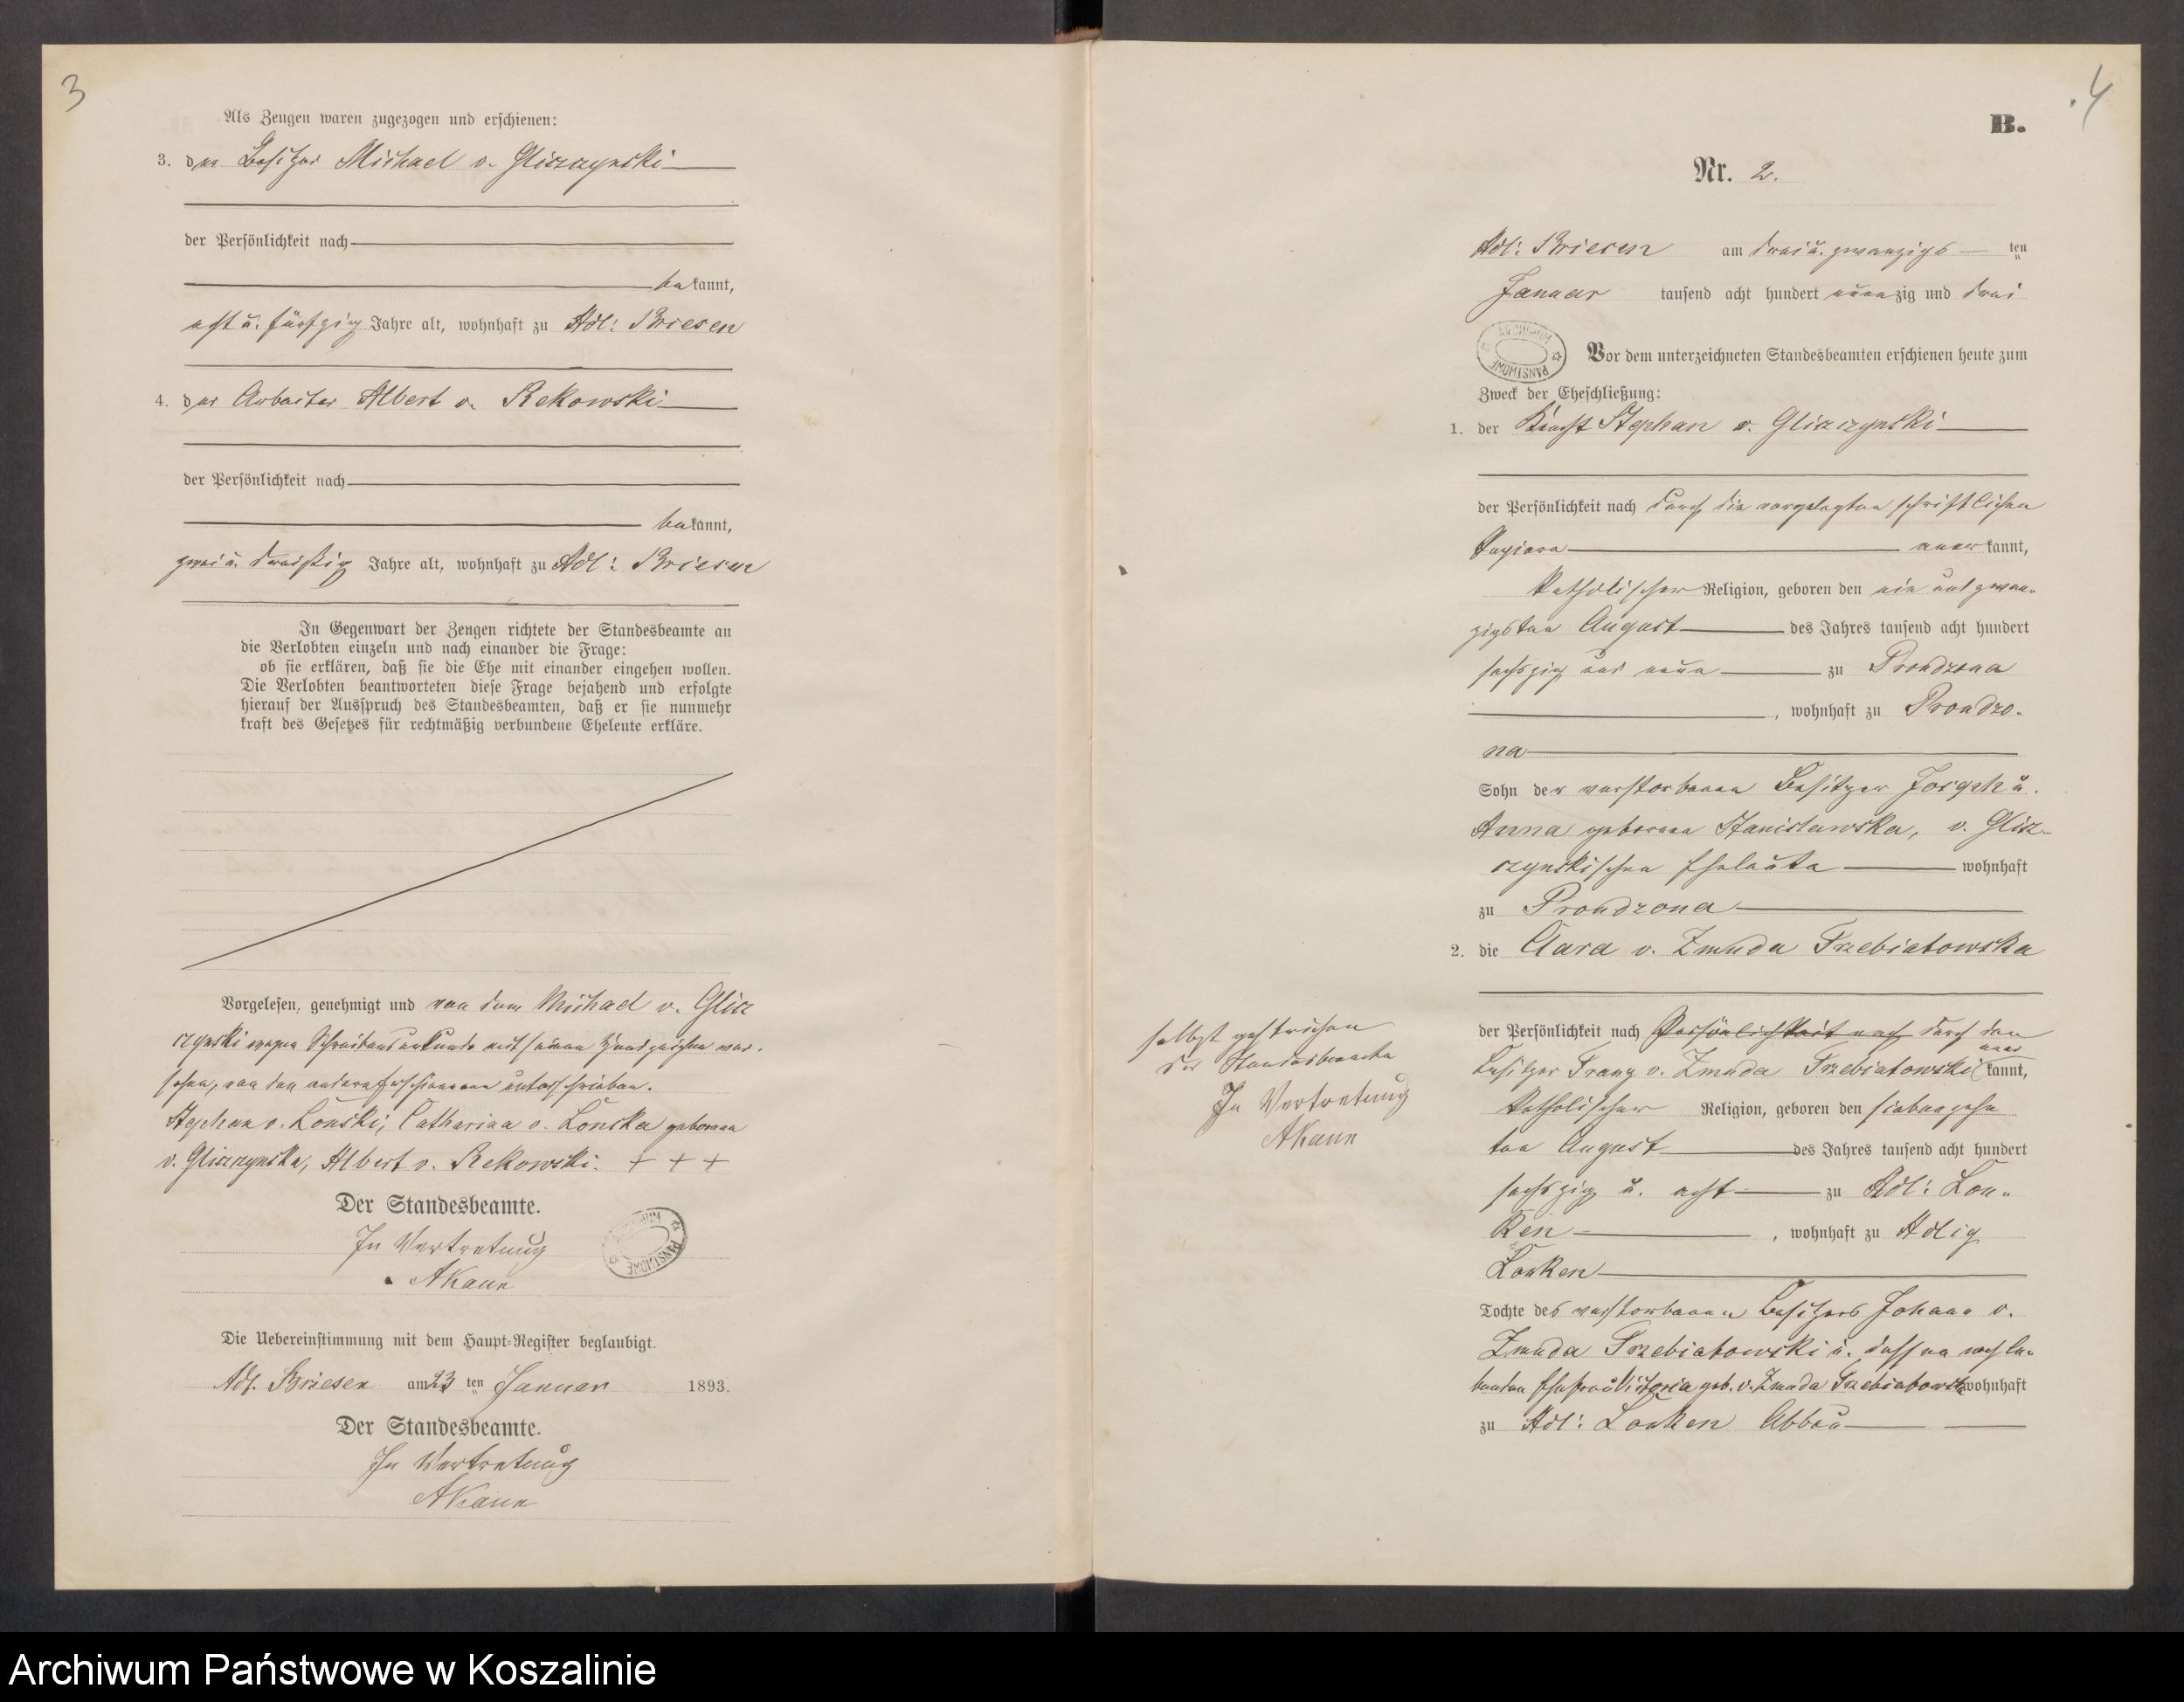 3
Als Zeugen waren zugezogen und erschienen:
3. der Besitzer Michael v. Gliszczynski
der Persönlichkeit nach
bekannt,
acht u. fünfzig Jahre alt, wohnhaft zu Adl: Briesen
4. der Arbeiter Albert v. Rekowski
der Persönlichkeit nach
bekannt,
zwei u. dreißig Jahre alt, wohnhaft zu Adl: Briesen
In Gegenwart der Zeugen richtete der Standesbeamte an
die Verlobten einzeln und nach einander die Frage:
ob sie erklären, daß sie die Ehe mit einander eingehen wollen.
Die Verlobten beantworteten diese Frage bejahend und erfolgte
hierauf der Ausspruch des Standesbeamten, daß er sie nunmehr
kraft des Gesetzes für rechtmäßig verbundene Eheleute erkläre.
Vorgelesen, genehmigt und von dem Michael v. Glisz
czynski wegen Schreibensunkunde mit seinem Handzeichen ver-
sehen, von den andern Erschienenen unterschrieben.
Stephan v. Lonski, Catharina v. Lonska geborene
v. Gliszczynska, Albert v. Rekowski. + + +
Der Standesbeamte.
In Vertretung
AKann
Die Uebereinstimmung mit dem Haupt-Register beglaubigt.
Adl. Briesen am 23 ten Januar 1893.
Der Standesbeamte.
In Vertretung
AKann
4
B.
Nr. 2.
Adl: Briesen am drei u. zwanzigs ten
Januar tausend acht hundert neunzig und drei
ARCHIWUM PAŃSTWOWE
Vor dem unterzeichneten Standesbeamten erschienen heute zum
Zweck der Eheschließung:
1. der Knecht Stephan v. Gliszczynski
der Persönlichkeit nach durch die vorgelegten schriftlichen
Papiere anerkannt,
katholischer Religion, geboren den ein und zwan-
zigsten August des Jahres tausend acht hundert
sechszig und neun zu Prondzona
, wohnhaft zu Prondzo-
na
Sohn der verstorbenen Besitzer Joseph u.
Anna geborene Stanislawska, v. Glisz-
czynskischen Eheleute wohnhaft
zu Prondzona
2. die Clara v. Zmuda Trzebiatowska
der Persönlichkeit nach Persönlichkeit nach durch den
Besitzer Franz v. Zmuda Trzebiatowski anerkannt,
katholischer Religion, geboren den siebenzehn
ten August des Jahres tausend acht hundert
sechszig u. acht zu Adl: Lon-
ken , wohnhaft zu Adlig
Lonken
Tochte des verstorbenen Besitzers Johann v.
Zmuda Trzebiatowski u. dessen noch le-
benden Ehefrau Victoria geb. v. Zmuda Trzebiatowska wohnhaft
zu Adl: Lonken Abbau
selbst gestrichen
Der Standesbeamte
In Vertretung
AKann
Archiwum Państwowe w Koszalinie